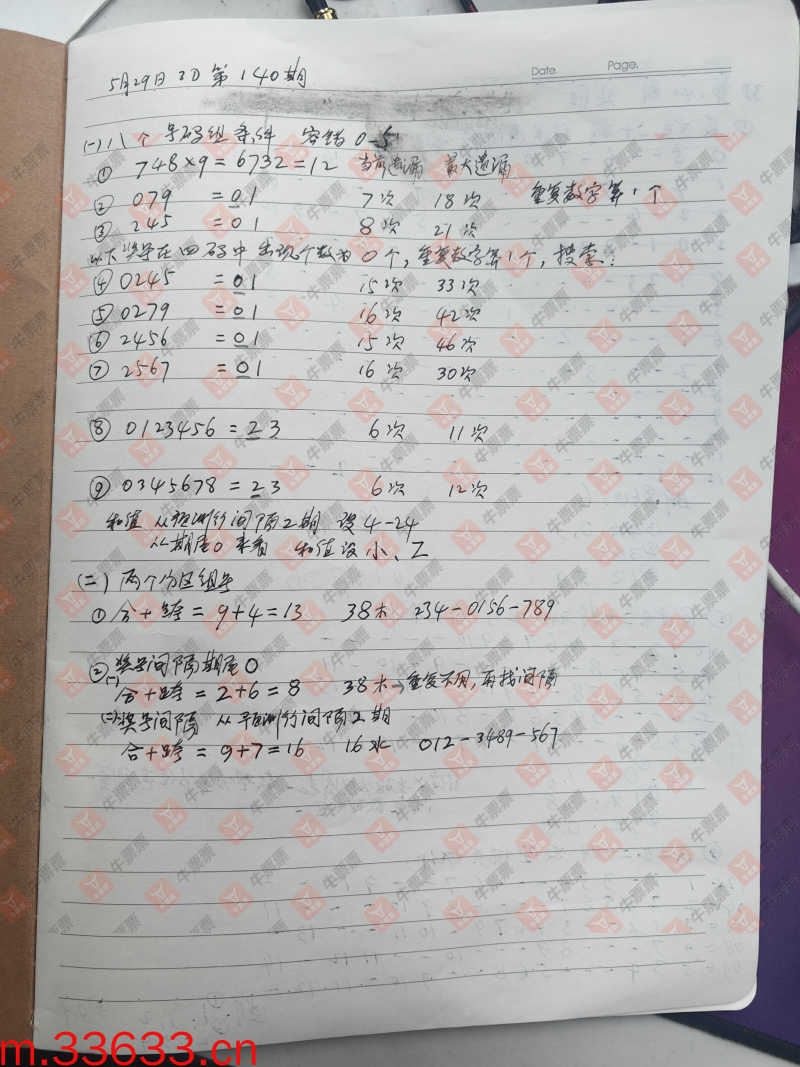 Date. Page.
5月29日 3D 第140期
(一) 八个号码组条件 容错0-5
① 748×9=6732=12 当前遗漏 最大遗漏
② 079 =01 7次 18次 重复数字算1个
③ 245 =01 8次 21次
以下奖号在四码中出现个数为0个,重复数字算1个,搜索:
④ 0245 =01 15次 33次
⑤ 0279 =01 16次 42次
⑥ 2456 =01 15次 46次
⑦ 2567 =01 16次 30次
⑧ 0123456=23 6次 11次
⑨ 0345678=23 6次 12次
和值 从预测行间隔2期 设4-24
从期尾0来看 和值设小、
(二) 两个分区组号
① 合+跨=9+4=13 38木 234-0156-789
② 奖号间隔期尾0
(一) 合+跨=2+6=8 38木→重复不用,再找间隔
(二) 奖号间隔 从预测行间隔2期
合+跨=9+7=16 16水 012-3489-567
牛票票
m.33633.cn